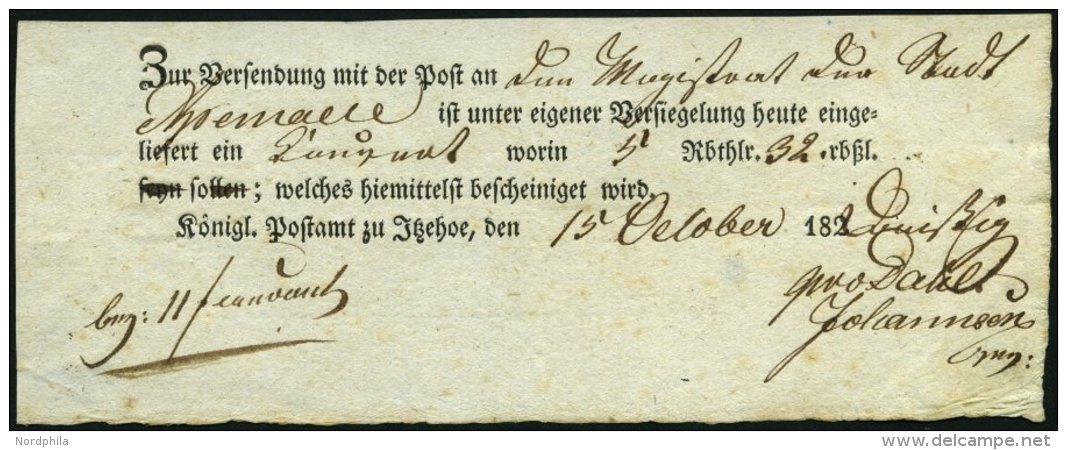 Zur Versendung mit der Post an den Magistrat der Stadt
ist unter eigener Versiegelung heute einge-
liefert ein Couvert worin 5 Rbthlr. 32 rbßl.
seyn sollen; welches hiemittelst bescheiniget wird.
Königl. Postamt zu Itzehoe, den 15 October 182 dreißig
Johannsen
Nordphila
delcampe.net